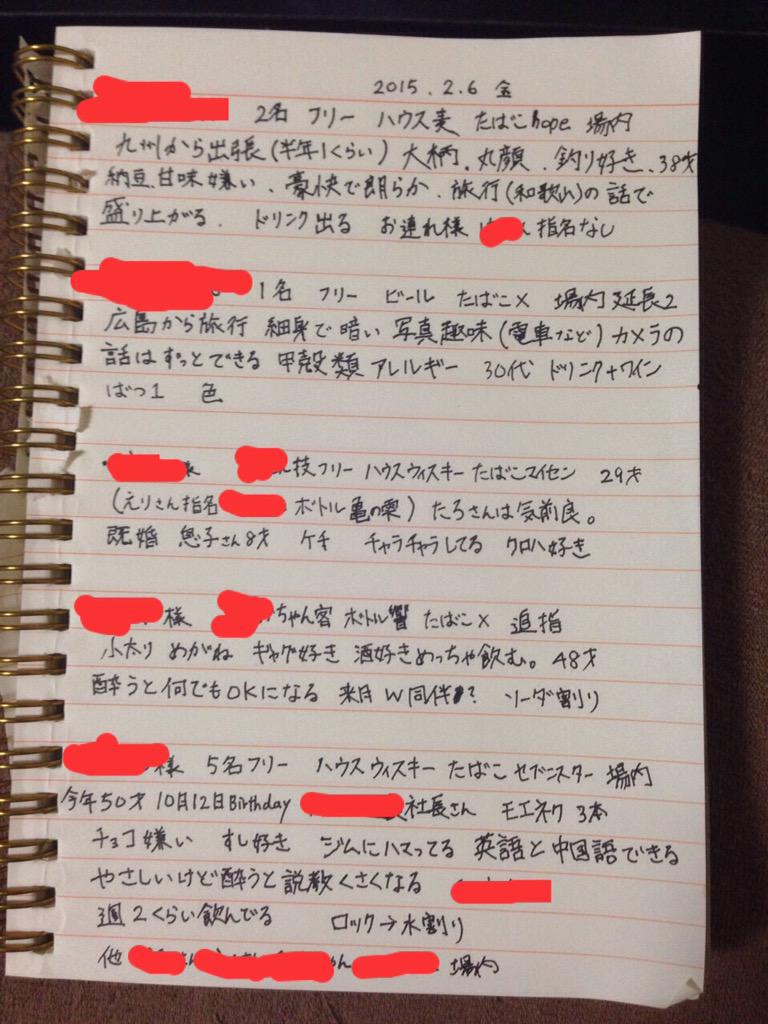 2015.2.6 金
2名 フリー ハウス麦 たばこhope 場内
九州から出張(半年1くらい) 大柄、丸顔、釣り好き、38才
納豆、甘味嫌い、豪快で朗らか、旅行(和歌山)の話で
盛り上がる、 ドリンク出る お連れ様 指名なし
1名 フリー ビール たばこ× 場内 延長2
広島から旅行 細身で暗い 写真趣味(電車など)カメラの
話はずっとできる 甲殻類アレルギー 30代 ドリンク+ワイン
ばつ1 色
技フリー ハウスウィスキー たばこマイセン 29才
(えりさん指名 ボトル亀の雫) たろさんは気前良。
既婚 息子さん8才 ケチ チャラチャラしてる クロハ好き
様 ちゃん客 ボトル響 たばこ× 追指
小太り めがね ギャグ好き 酒好きめっちゃ飲む。48才
酔うと何でもOKになる 来月 W同伴? ソーダ割り
様 5名フリー ハウスウィスキー たばこ セブンスター 場内
今年50才 10月12日Birthday 社長さん モエネク 3本
チョコ嫌い すし好き ジムにハマってる 英語と中国語できる
やさしいけど酔うと説教くさくなる
週2くらい飲んでる ロック→水割り
他 さん 場内